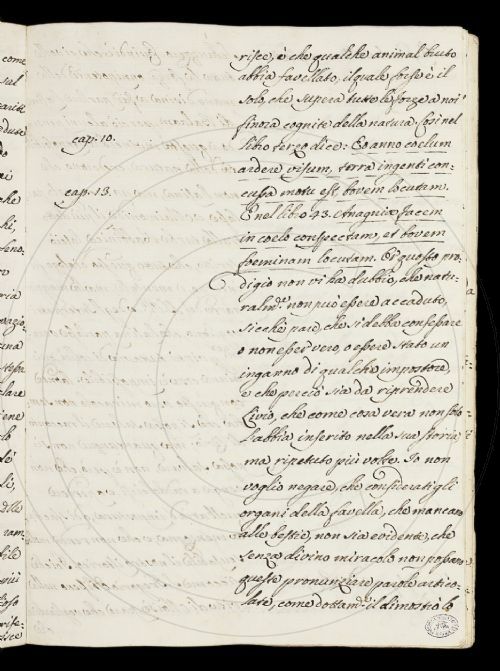 risce, è che qualche animal bruto
abbia favellato, il quale forse è il
solo, che supera tutte le forze a noi
finora cognite della natura. Così nel
cap. 10.
libro terzo dice: Eo anno coelum
ardere visum, terra ingenti con-
cap. 13.
cussa motu est bovem locutam.
E nel libro 43. Anagniæ facem
in coelo conspectam, et bovem
foeminam locutam. Di questo pro-
digio non vi ha dubbio, che natu-
ralmte non può essere accaduto,
sicchè pare, che si debba confessare
o non esser vero, o essere stato un
inganno di qualche impostore,
e che perciò sia da riprendere
Livio, che come cosa vera non solo
l'abbia inserito nella sua storia,
ma ripetuto più volte. Io non
voglio negare, che considerati gli
organi della favella, che mancano
alle bestie, non sia evidente, che
senza divino miracolo non possano
queste pronunziare parole artico-
late, come dottamte il dimostrò lo